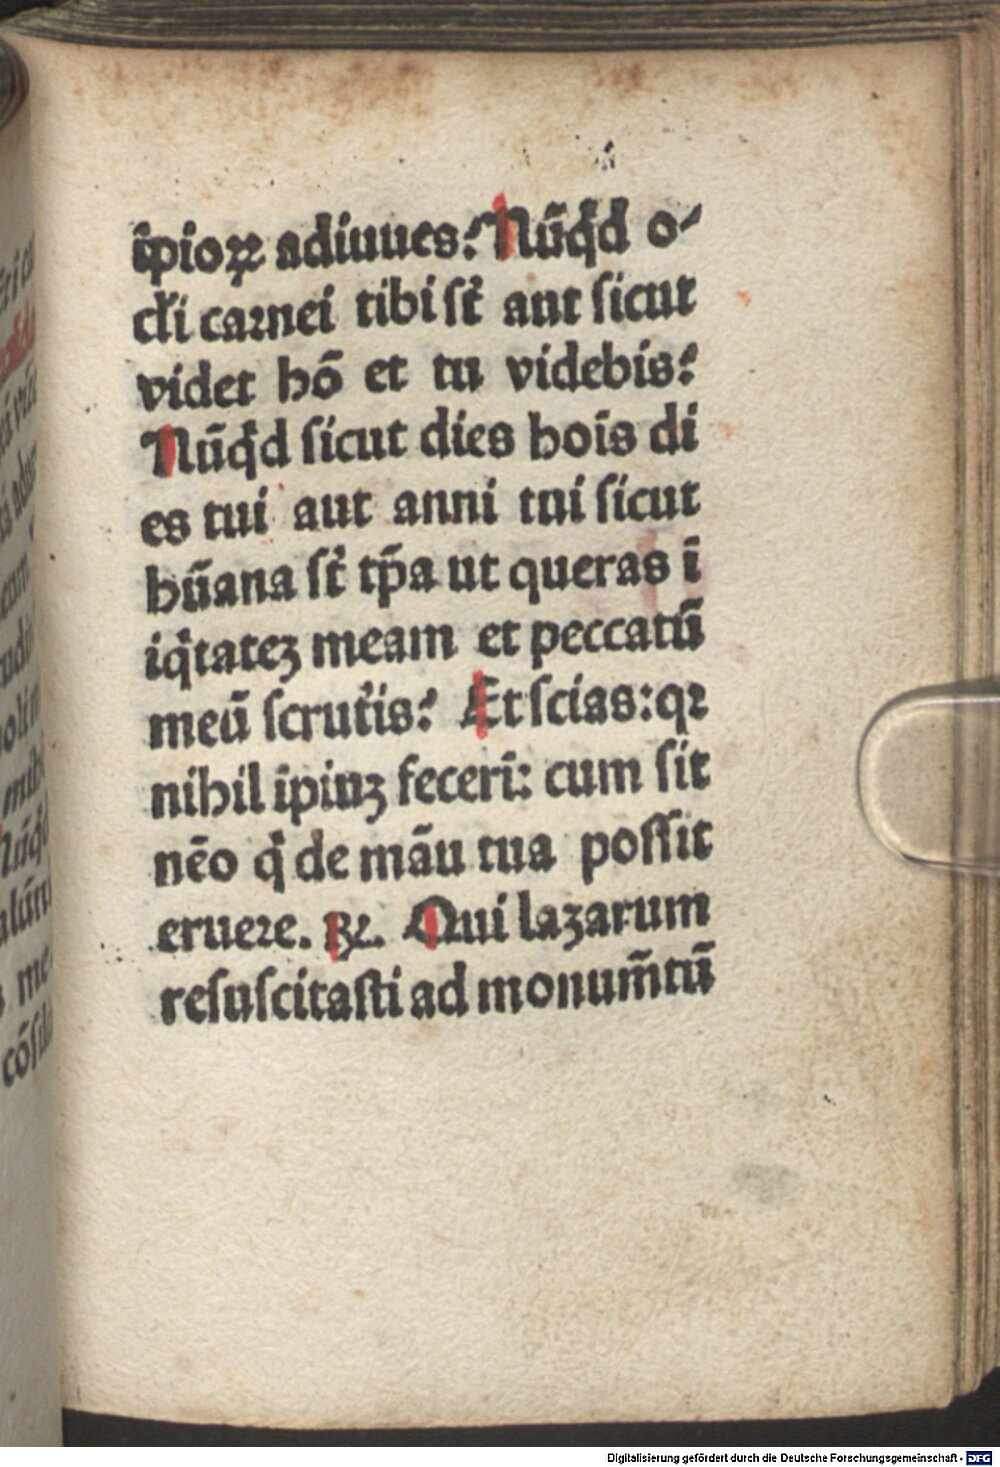 īpioꝝ adiuues? Nūqd́ o-
cl̄i carnei tibi st̄ aut sicut
videt hō et tu videbis?
Nūqd́ sicut dies hoīs di
es tui aut anni tui sicut
hūana st̄ tp̄a ut queras ī
iq̇tatez meam et peccatū
meū scrut̄is? Et scias: qꝛ
nihil īpiuꝫ fecerī: cum sit
nēo q̇ de māu tua possit
eruere. ꝶ. Qui lazarum
resuscitasti ad monum̄tū
Digitalisierung gefördert durch die Deutsche Forschungsgemeinschaft - DFG